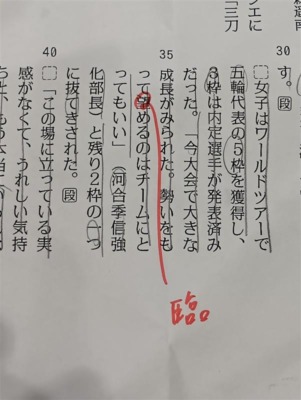 クエに
「三刀
30
す。段
女子はワールドツアーで
五輪代表の5枠を獲得し、
3枠は内定選手が発表済み
だった。「今大会で大きな
35
成長がみられた。勢いをも
って望めるのはチームにと
ってもいい」(河合季信強
化部長)と残り2枠の一つ
に抜てきされた。段
40
「この場に立っている実
感がなくて、うれしい気持
臨